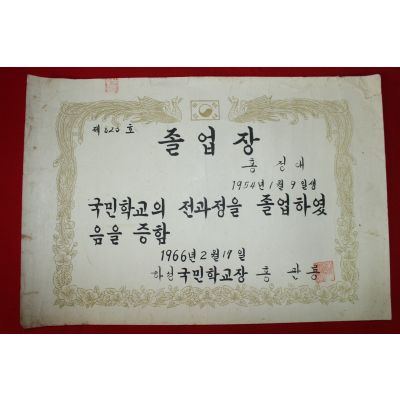 졸업장
홍정애
1954년 1월 9일생
국민학교의 전과정을 졸업하였
음을 증함
1966년 2월 17일
국민학교장 홍관